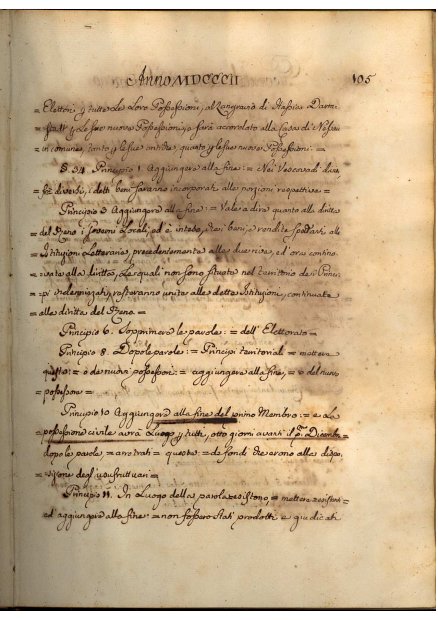 Anno MDCCCII 105
= Elettori, e tutte le loro Possessioni, al Langravio di Hassia Darm=
= statt, e le sue nuove Possessioni, sarà accordato alla Casa di Nassau
= in comune, tanto le sue antiche, quanto le sue nuove Possessioni: =
§ 34 Principio 1. Aggiungere alla fine: = Nei Vescovadi
diversi, i detti beni saranno incorporati alle porzioni respettive =
Principio 3 Aggiungere alla fine: = Vale a dire quanto alla diritta
= del Reno i sovrani locali, ed è inteso, i beni, e rendite spettanti alle
= Istituzioni Letterarie, precedentemente alle due rive, ed ora continu=
= vate alla diritta, le quali non sono situate nel territorio de Princi=
= pi indennizzati, resteranno unite alle dette Istituzioni, continuate
= alla diritta del Reno =
Principio 6. Sopprimere le parole: = dell' Elettorato =
Principio 8. Dopo le parole: = Principi territoriali = mettere
questo: = o de nuovi possessori: = aggiungere alla fine, = o del nuovo
= possessore =
Principio 10 Aggiungere alla fine del primo Membro: = e la
= possessione civile avrà Luogo tutti, otto giorni avanti il p.º Dicemb=
dopo le parole = arretrati = queste: = de fondi che erano alla dispo=
= sizione degl' usufruttuari =
Principio 11. In Luogo della parola resistono, = mettere
ed aggiungere alla fine: = non fossero stati prodotti e giudicati